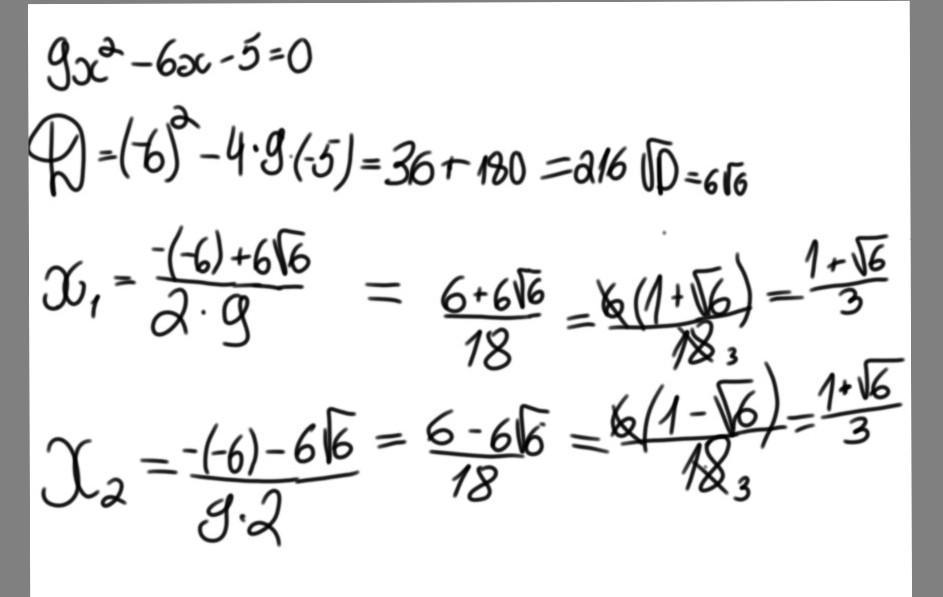 9x² - 6x - 5 = 0
D = (-6)² - 4 · 9 · (-5) = 36 + 180 = 216 √D = 6√6
x₁ = (-(-6) + 6√6)/(2 · 9) = (6 + 6√6)/18 = 6(1 + √6)/18 3 = (1 + √6)/3
x₂ = (-(-6) - 6√6)/(9 · 2) = (6 - 6√6)/18 = 6(1 - √6)/18 3 = (1 + √6)/3